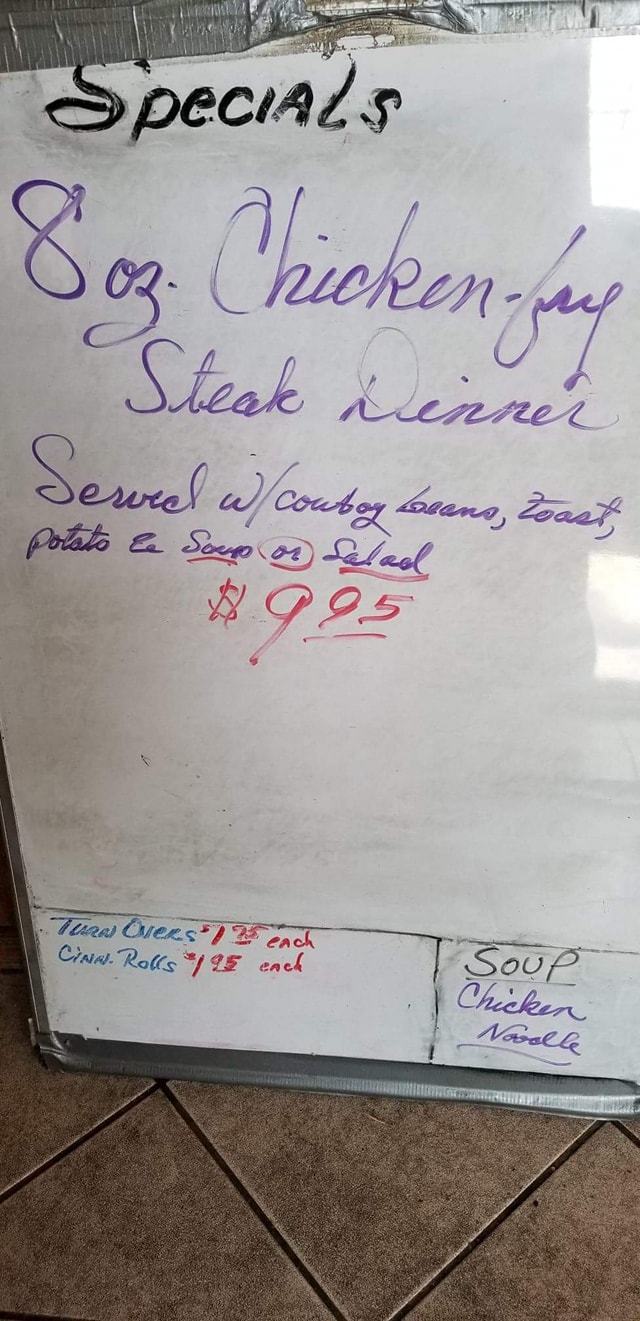 Specials
8 oz. Chicken-fry
Steak Dinner
Served w/ cowboy beans, toast,
potato & Soup or Salad
$9 95
Turn Overs $1 95 each
Cinn. Rolls $1 95 each
Soup
Chicken
Noodle